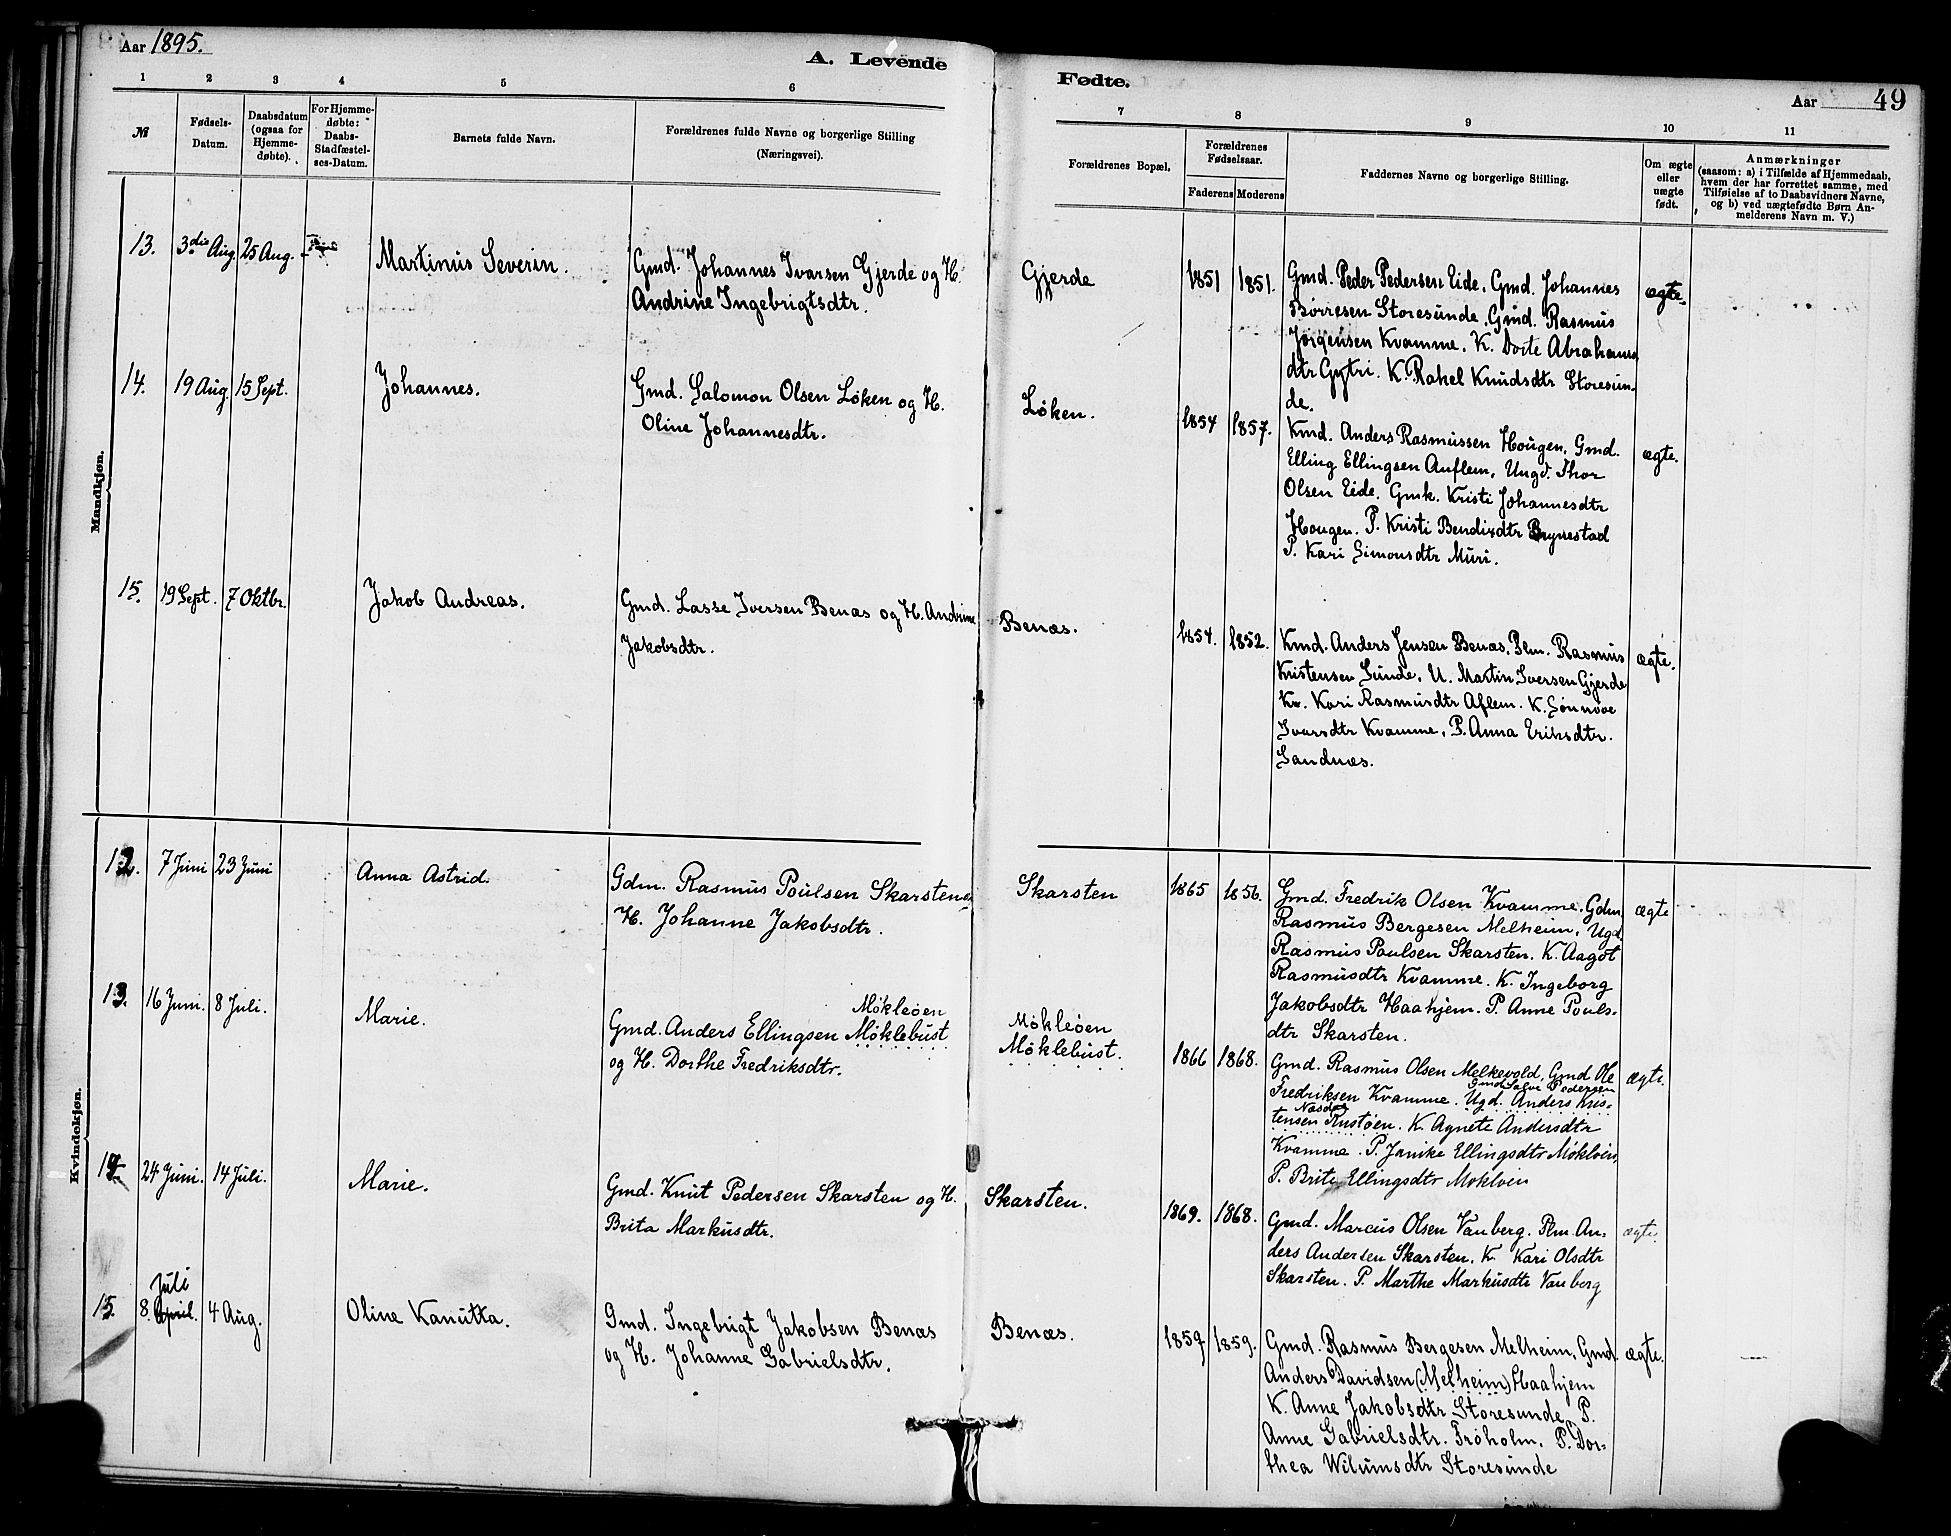 Aar 1895.
A. Levende
1 2 3 4 5 6
№
Fødsels-
Datum.
Daabsdatum
(ogsaa for
Hjemme-
døbte).
For Hjemme-
døbte:
Daabs-
Stadfæstel-
ses-Datum.
Barnets fulde Navn.
Forældrenes fulde Navne og borgerlige Stilling
(Næringsvei).
Mandkjøn.
13. 3die Aug. 25 Aug. Martinus Severin.
Gmd. Johannes Ivarsen Gjerde og H.
Andrine Ingebrigtsdtr.
14. 19 Aug. 15 Sept. Johannes.
Gmd. Salomon Olsen Løken og H.
Oline Johannesdtr.
15. 19 Sept. 7 Oktbr. Jakob Andreas.
Gmd. Lasse Iversen Benæs og H. Andrine
Jakobsdtr.
Kvindekjøn.
12. 7 Juni 23 Juni Anna Astrid.
Gdm. Rasmus Poulsen Skarsten og
H. Johanne Jakobsdtr.
13. 16 Juni. 8 Juli. Marie.
Møkleøen
Gmd. Anders Ellingsen Møklebust
og H. Dorthe Fredriksdtr.
14. 24 Juni. 14 Juli. Marie.
Gmd. Knut Pedersen Skarsten og H.
Brita Markusdtr.
Juli
15. 8. April. 4 Aug. Oline Kanutta.
Gmd. Ingebrigt Jakobsen Benæs
og H. Johanne Gabrielsdtr.
Fødte.
Aar 49
7 8 9 10 11
Forældrenes Bopæl,
Forældrenes
Fødselsaar.
Faderens Moderens
Faddernes Navne og borgerlige Stilling.
Om ægte
eller
uægte
født.
Anmærkninger
(saasom: a) i Tilfælde af Hjemmedaab,
hvem der har forrettet samme, med
Tilføielse af to Daabsvidners Navne,
og b) ved uægtefødte Børn An-
melderens Navn m. V.)
Gjerde 1851 1851.
Gmd. Peder Pedersen Eide. Gmd. Johannes
Børresen Storesunde. Gmd. Rasmus
Jørgensen Kvamme. K. Dorte Abrahams
dtr Gytri. K. Rakel Knudsdtr Storesun-
de.
ægte.
Løken. 1854 1857.
Kmd. Anders Rasmussen Hougen, Gmd.
Elling Ellingsen Auflem, Ungd. Thor
Olsen Eide. Gmk. Kristi Johannesdtr
Hougen. P. Kristi Bendixdtr Brynestad
P. Kari Simonsdtr Muri.
ægte.
Benæs. 1854. 1852.
Kmd. Anders Jensen Benæs, Plm. Rasmus
Kristensen Sunde, U. Martin Iversen Gjerde
Kv. Kari Rasmusdtr Aflem. K. Sønnøve
Ivarsdtr Kvamme, P. Anna Eriksdtr.
Sandnæs.
ægte.
Skarsten 1865 1856.
Gmd. Fredrik Olsen Kvamme. Gdm.
Rasmus Bergesen Melheim, Ugd.
Rasmus Poulsen Skarsten. K. Aagot
Rasmusdtr Kvamme. K. Ingeborg
Jakobsdtr Haahjem. P. Anne Pouls-
dtr Skarsten.
ægte
Møkleøen
Møklebust. 1866 1868.
Gmd. Rasmus Olsen Melkevold, Gmd Ole
Gmd. Salve Pedersen
Fredriksen Kvamme. Ugd. Anders Kris-
tensen Rustøen. K. Agnete Andersdtr
Kvamme. P. Janike Ellingsdtr Møkløen,
P. Brite Ellingsdtr Møkløen
ægte.
Skarsten. 1869. 1868.
Gmd. Marcus Olsen Vanberg. Plm. An-
ders Andersen Skarsten, K. Kari Olsdtr
Skarsten. P. Marthe Markusdtr Vanberg
ægte.
Benæs. 1859 1859.
Gmd. Rasmus Bergesen Melheim, Gmd.
Anders Davidsen (Melheim) Haahjem
K. Anne Jakobsdtr Storesunde, P.
Anne Gabrielsdtr. Frøholm. P. Dor-
thea Wilumsdtr Storesunde
ægte.